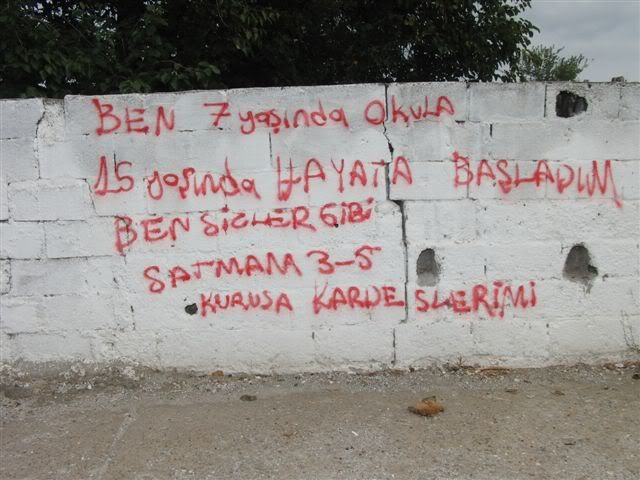 BEN 7 yaşında OKULA
15 yaşında HAYATA BAŞLADIM
BEN SİZLER GİBİ
SATMAM 3-5
KURUSA KARDESLERİMİ